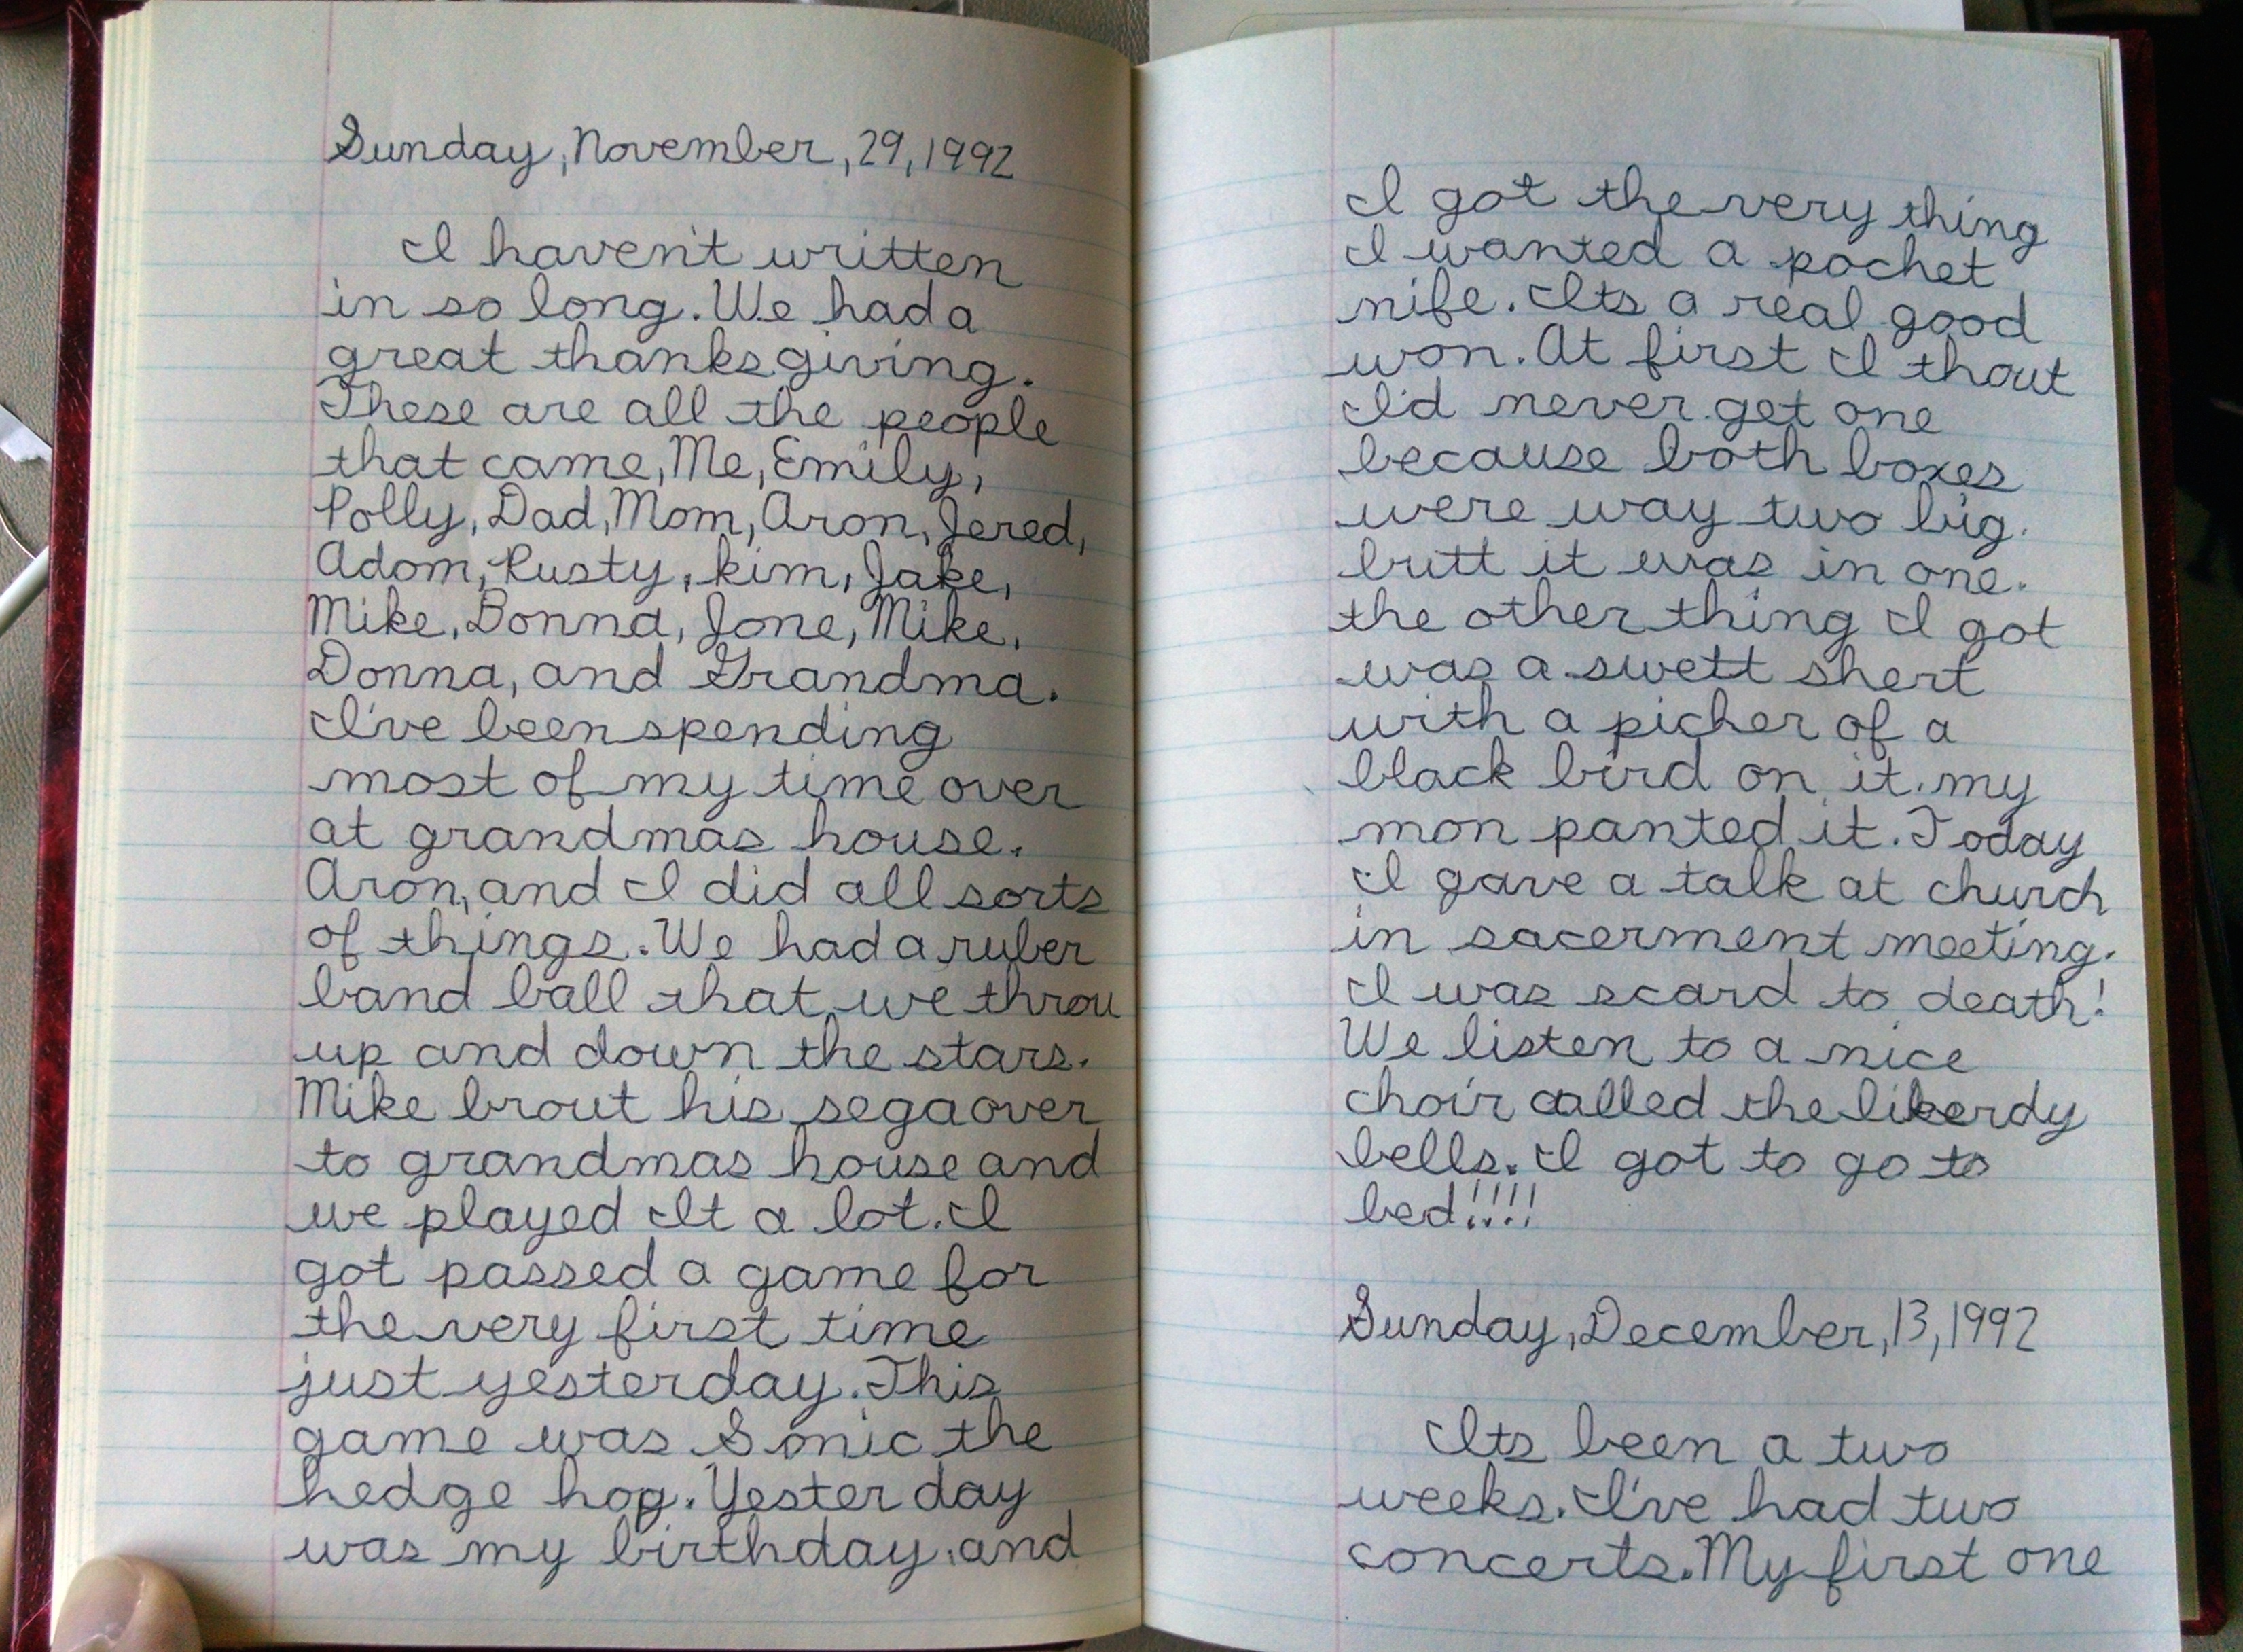 Sunday, November, 29, 1992
I haven't written
in so long. We had a
great thanksgiving.
These are all the people
that came, Me, Emily,
Polly, Dad, Mom, Aron, Jered,
Adom, Rusty, kim, Jake,
Mike, Donna, Jone, Mike,
Donna, and Grandma.
I've been spending
most of my time over
at grandmas house.
Aron, and I did all sorts
of things. We had a ruber
band ball that we throu
up and down the stars.
Mike brout his sega over
to grandmas house and
we played It a lot. I
got passed a game for
the very first time
just yesterday. This
game was Sonic the
hedge hog. Yester day
was my birthday, and
I got the very thing
I wanted a pochet
nife. Its a real good
won. At first I thout
I'd never get one
because both boxes
were way two big.
butt it was in one.
the other thing I got
was a swett shert
with a picher of a
black bird on it. my
mon panted it. Today
I gave a talk at church
in sacerment meeting.
I was scard to death!
We listen to a nice
choir called the likerdy
bells. I got to go to
bed!!!!
Sunday, December, 13, 1992
Its been a two
weeks. I've had two
concerts. My first one